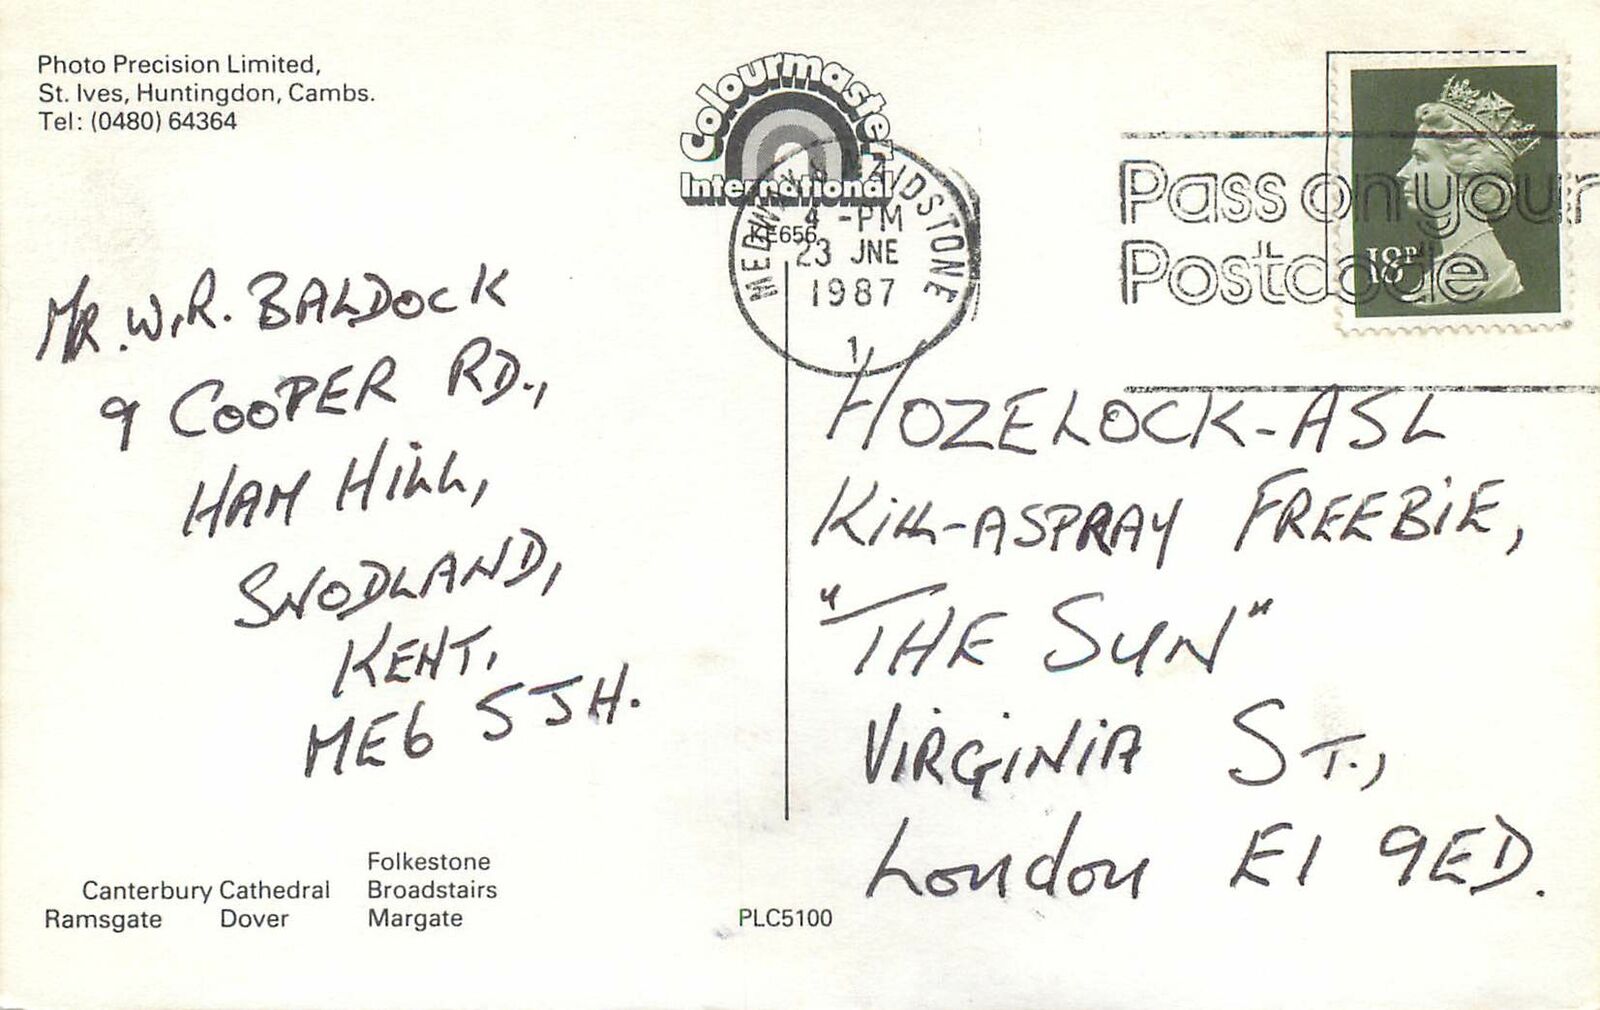 Photo Precision Limited,
St. Ives, Huntingdon, Cambs.
Tel: (0480) 64364
Colourmaster
International
KE656
MEDWAY & MAIDSTONE
4 -PM
23 JNE
1987
1
Pass on your
Postcode
18P
MR. W.R. BALDOCK
9 COOPER RD.,
HAM HILL,
SNODLAND,
KENT,
ME6 5JH.
HOZELOCK-ASL
KILL-ASPRAY FREEBIE,
"THE SUN"
VIRGINIA ST.,
London E1 9ED.
Folkestone
Canterbury Cathedral Broadstairs
Ramsgate Dover Margate
PLC5100